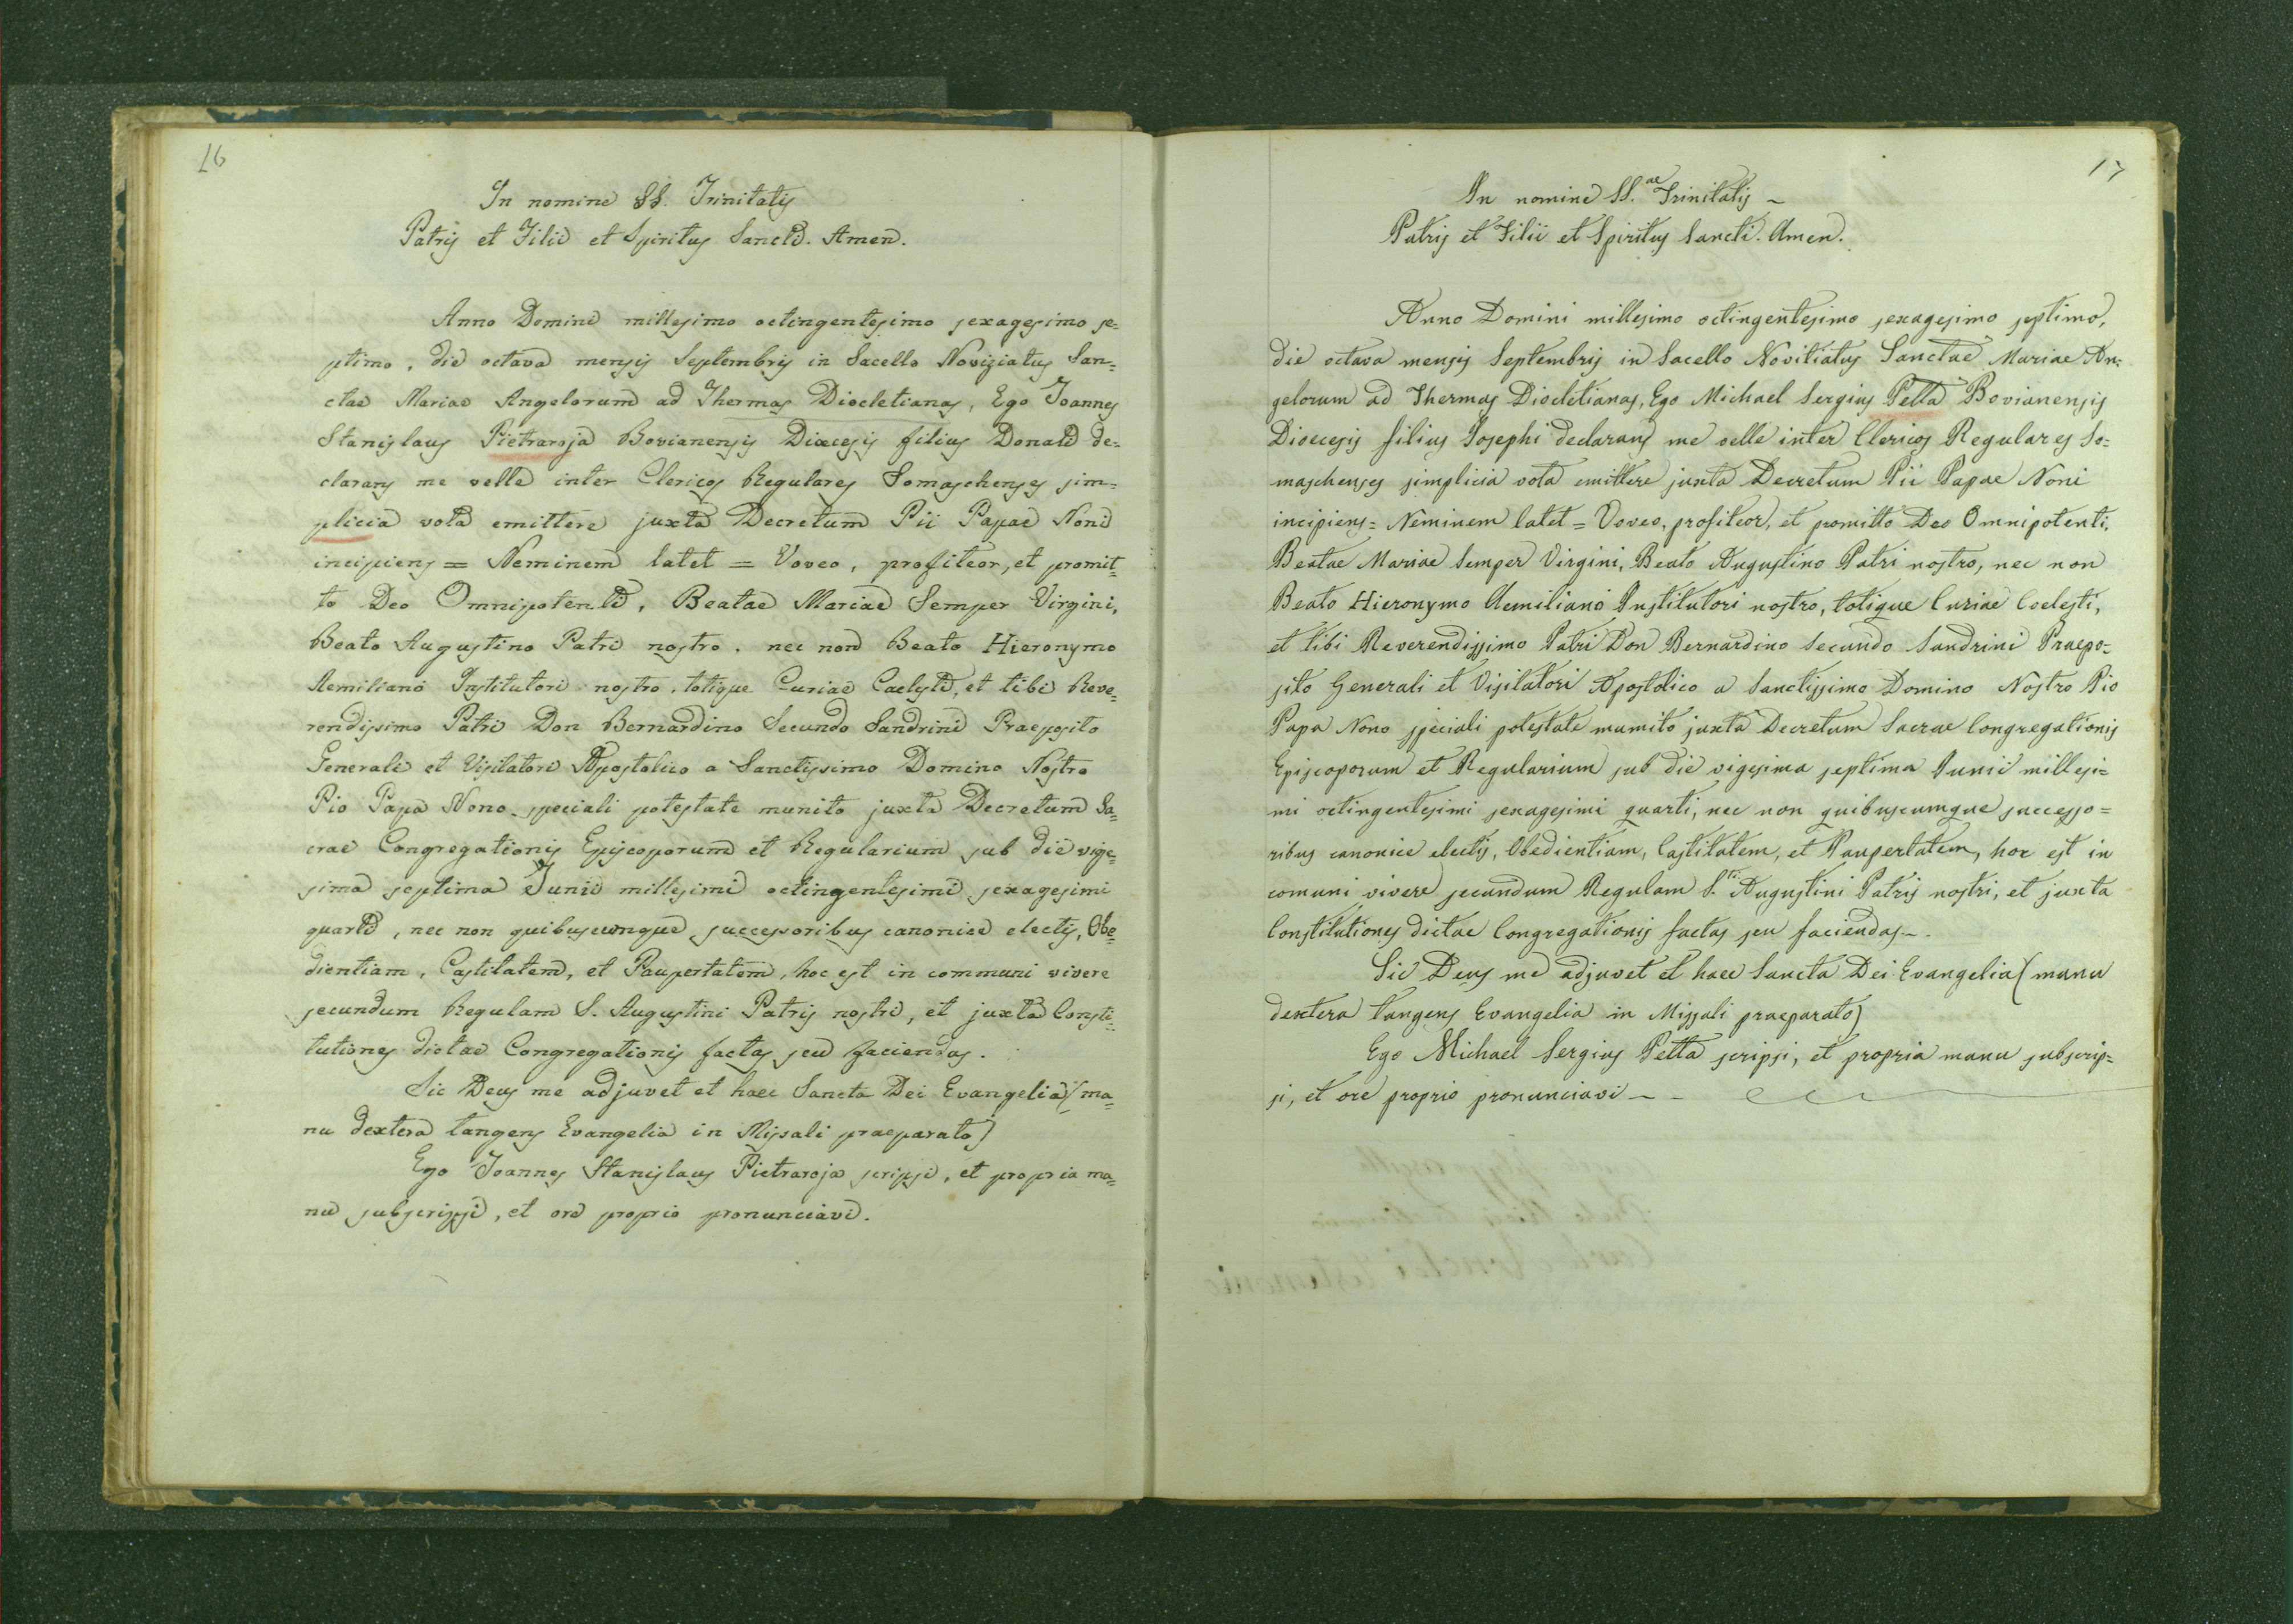 16
In nomine SS. Trinitatis
Patris et Filii et Spiritus Sancti. Amen.
Anno Domini millesimo octingentesimo sexagesimo se=
ptimo, die octava mensis Septembris in Sacello Noviziatus San=
ctae Mariae Angelorum ad Thermas Diocletianas, Ego Joannes
Stanislaus Pietraroja Bovianensis Dioecesis filius Donati de=
clarans me velle inter Clericos Regulares Somaschenses sim=
plicia vota emittere juxta Decretum Pii Papae Noni
incipiens = Neminem latet = Voveo, profiteor, et promit=
to Deo Omnipotenti, Beatae Mariae Semper Virgini,
Beato Augustino Patri nostro, nec non Beato Hieronymo
Aemiliano Institutori nostro, totique Curiae Caelesti, et tibi Reve=
rendissimo Patri Don Bernardino Secundo Sandrini Praeposito
Generali et Visitatori Apostolico a Sanctissimo Domino Nostro
Pio Papa Nono speciali potestate munito juxta Decretum Sa=
crae Congregationis Episcoporum et Regularium sub die vige=
sima septima Junii millesimi octingentesimi sexagesimi
quarti, nec non quibuscumque successoribus canonice electis, Obe=
dientiam, Castitatem, et Paupertatem, hoc est in communi vivere
secundum Regulam S. Augustini Patris nostri, et juxta Consti=
tutiones dictae Congregationis factas seu faciendas.
Sic Deus me adjuvet et haec Sancta Dei Evangelia (ma=
nu dextera tangens Evangelia in Missali praeparato)
Ego Joannes Stanislaus Pietraroja scripsi, et propria ma=
nu subscripsi, et ore proprio pronunciavi.
17
In nomine SS.ae Trinitatis ~
Patris et Filii et Spiritus Sancti. Amen.
Anno Domini millesimo octingentesimo sexagesimo septimo,
die octava mensis Septembris in Sacello Novitiatus Sanctae Mariae An=
gelorum ad Thermas Diocletianas, Ego Michael Sergius Petta Bovianensis
Dioecesis filius Josephi declarans me velle inter Clericos Regulares So=
maschenses simplicia vota emittere juxta Decretum Pii Papae Noni
incipiens = Neminem latet = Voveo, profiteor, et promitto Deo Omnipotenti,
Beatae Mariae Semper Virgini, Beato Augustino Patri nostro, nec non
Beato Hieronymo Aemiliano Institutori nostro, totique Curiae Coelesti,
et tibi Reverendissimo Patri Don Bernardino Secundo Sandrini Praepo=
sito Generali et Visitatori Apostolico a Sanctissimo Domino Nostro Pio
Papa Nono speciali potestate mumito juxta Decretum Sacrae Congregationis
Episcoporum et Regularium sub die vigesima septima Junii millesi=
mi octingentesimi sexagesimi quarti, nec non quibuscumque successo=
ribus canonice electis, Obedientiam, Castitatem, et Paupertatem, hoc est in
comuni vivere secundum Regulam S.ti Augustini Patris nostri, et juxta
Constitutiones dictae Congregationis factas seu faciendas ~.
Sic Deus me adjuvet et haec Sancta Dei Evangelia (manu
dextera tangens Evangelia in Missali praeparato)
Ego Michael Sergius Petta scripsi, et propria manu subscrip=
si, et ore proprio pronunciavi ~ -